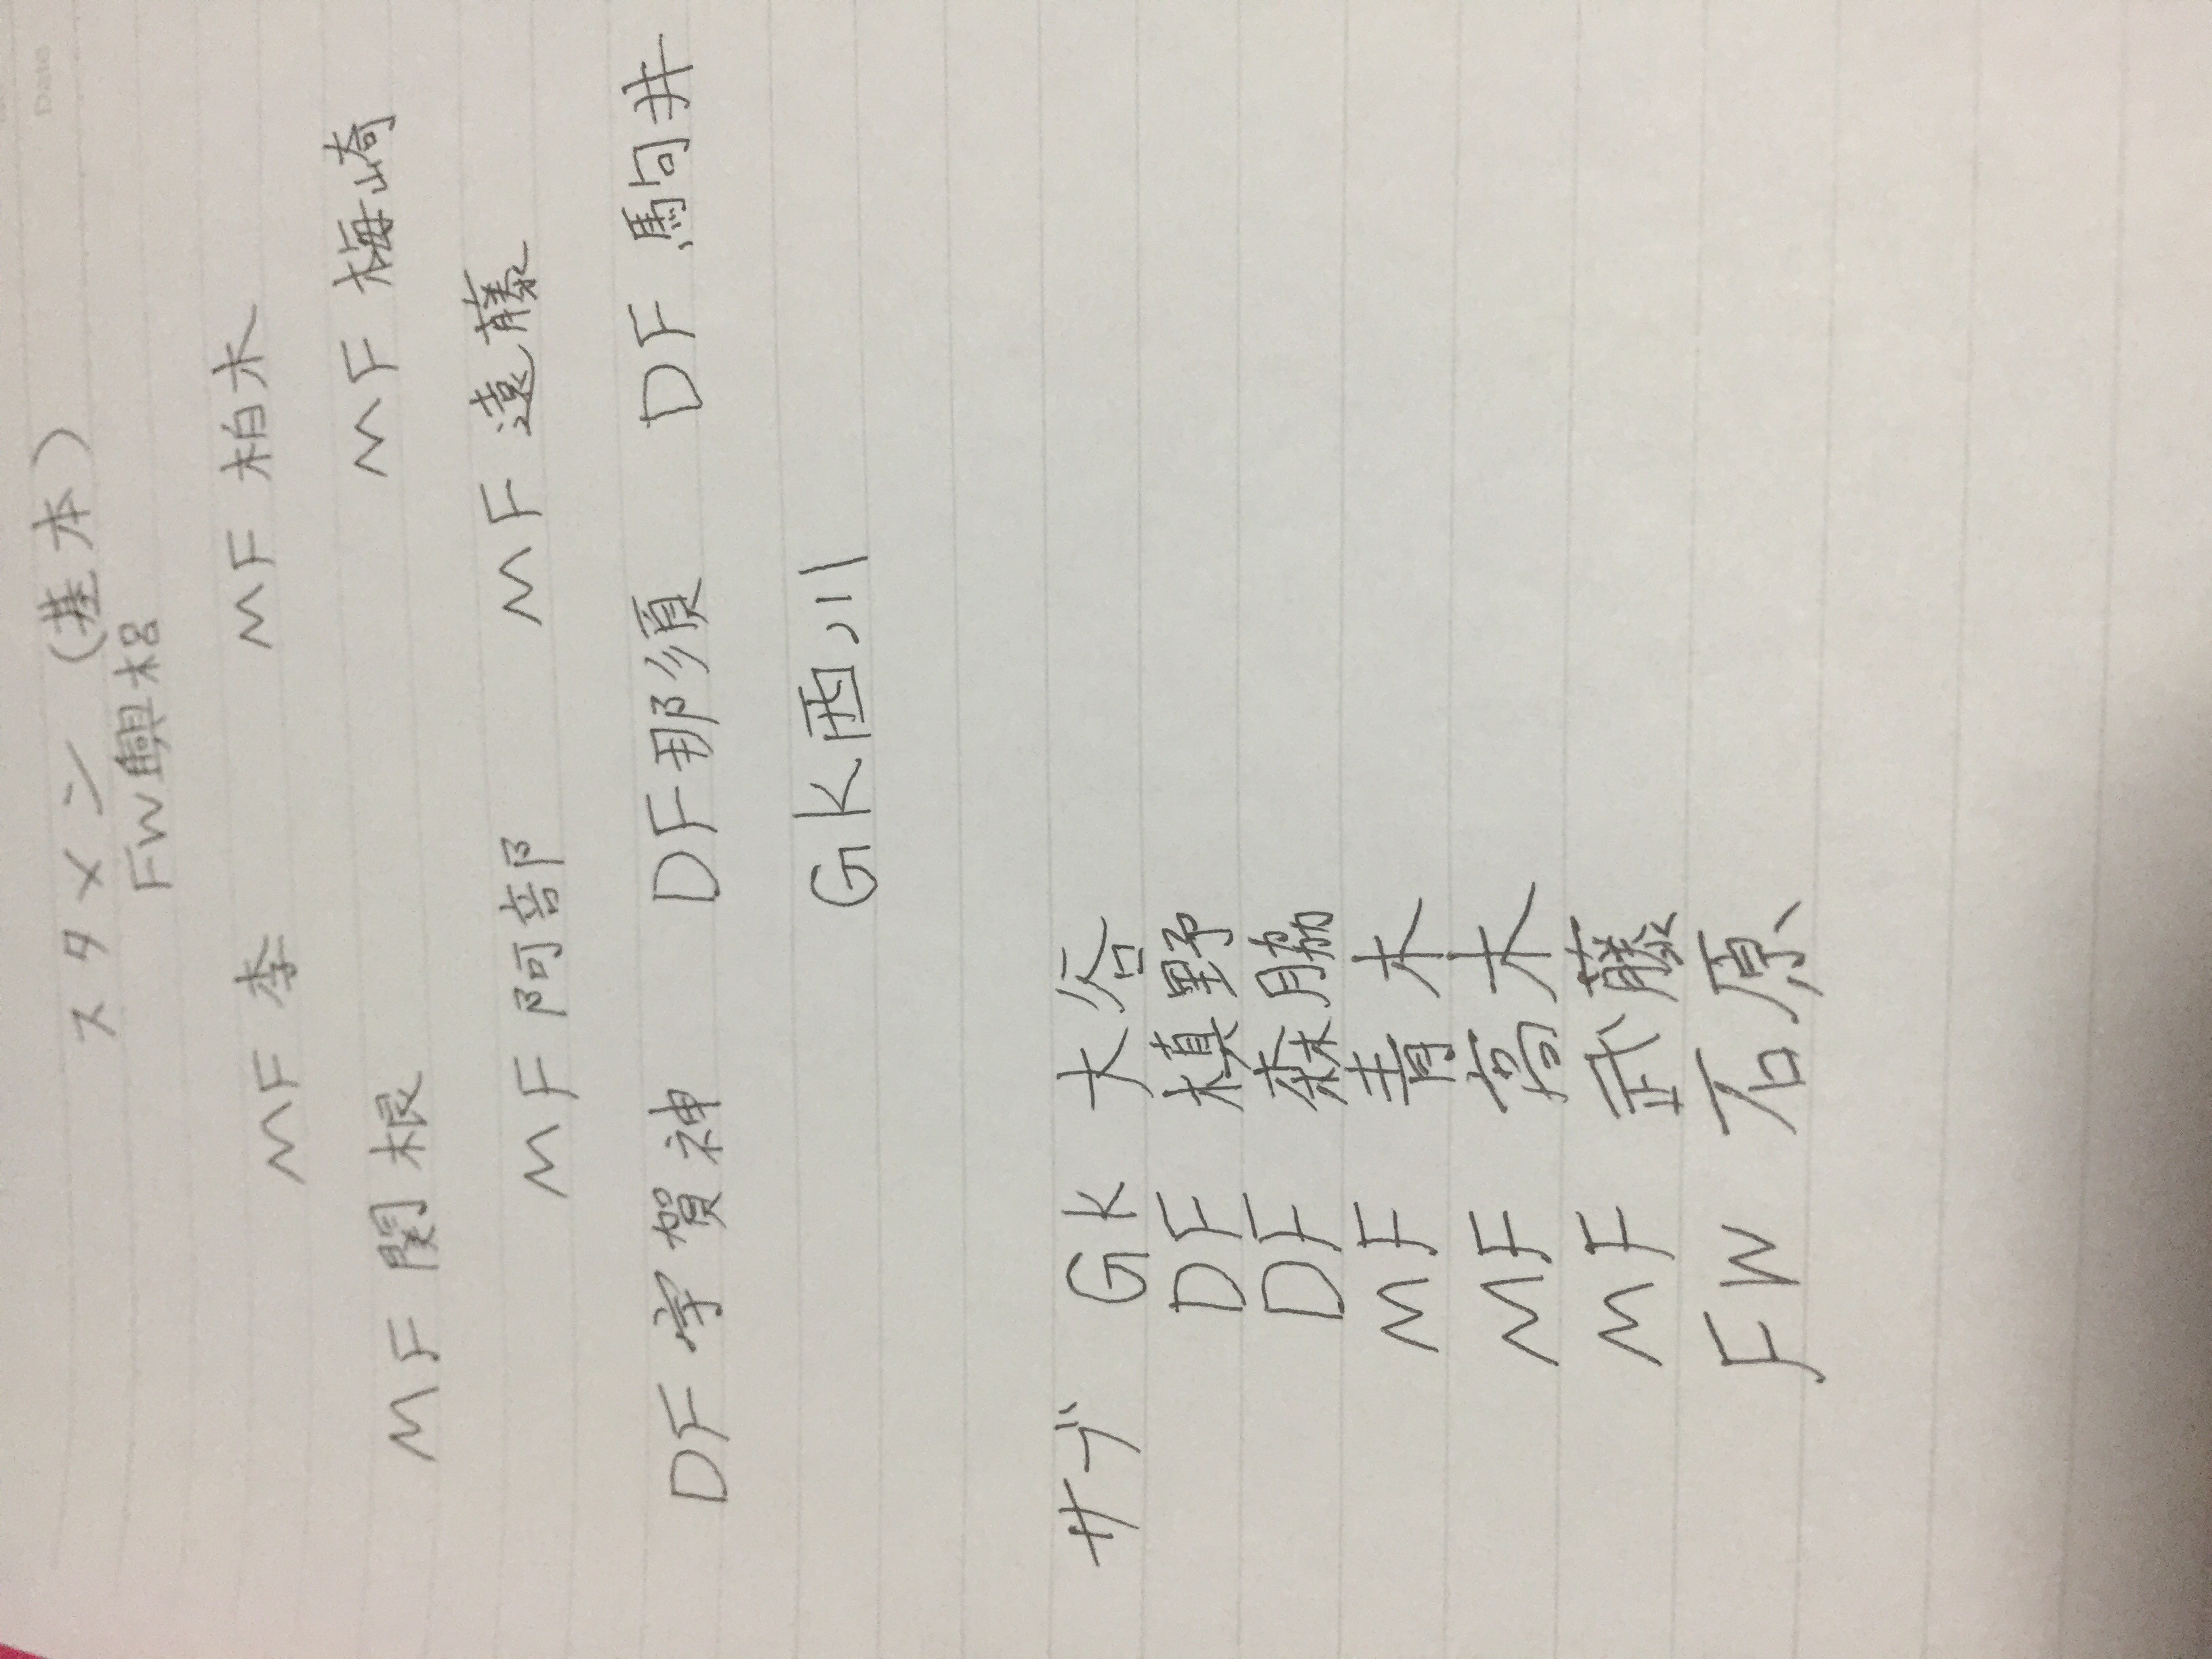 Date
スタメン (基本)
FW 興梠
MF 李 MF 柏木
MF 関根 MF 梅崎
MF 阿部 MF 遠藤
DF 宇賀神 DF 那須 DF 駒井
GK 西川
サブ GK 大谷
DF 槙野
DF 森脇
MF 青木
MF 高木
MF 武藤
FW 石原